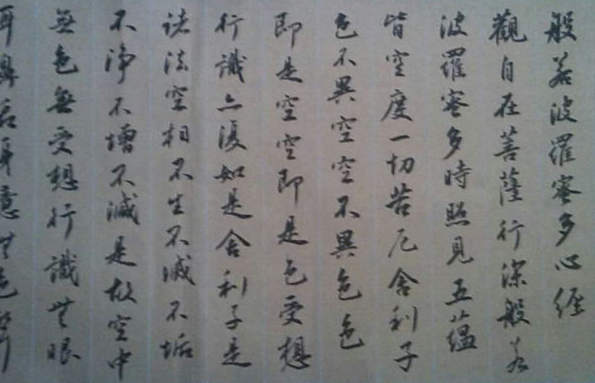 般若波羅蜜多心經
觀自在菩薩行深般若
波羅蜜多時照見五蘊
皆空度一切苦厄舍利子
色不異空空不異色色
即是空空即是色受想
行識亦復如是舍利子是
諸法空相不生不滅不垢
不淨不增不減是故空中
無色無受想行識無眼
耳鼻舌身意無色聲